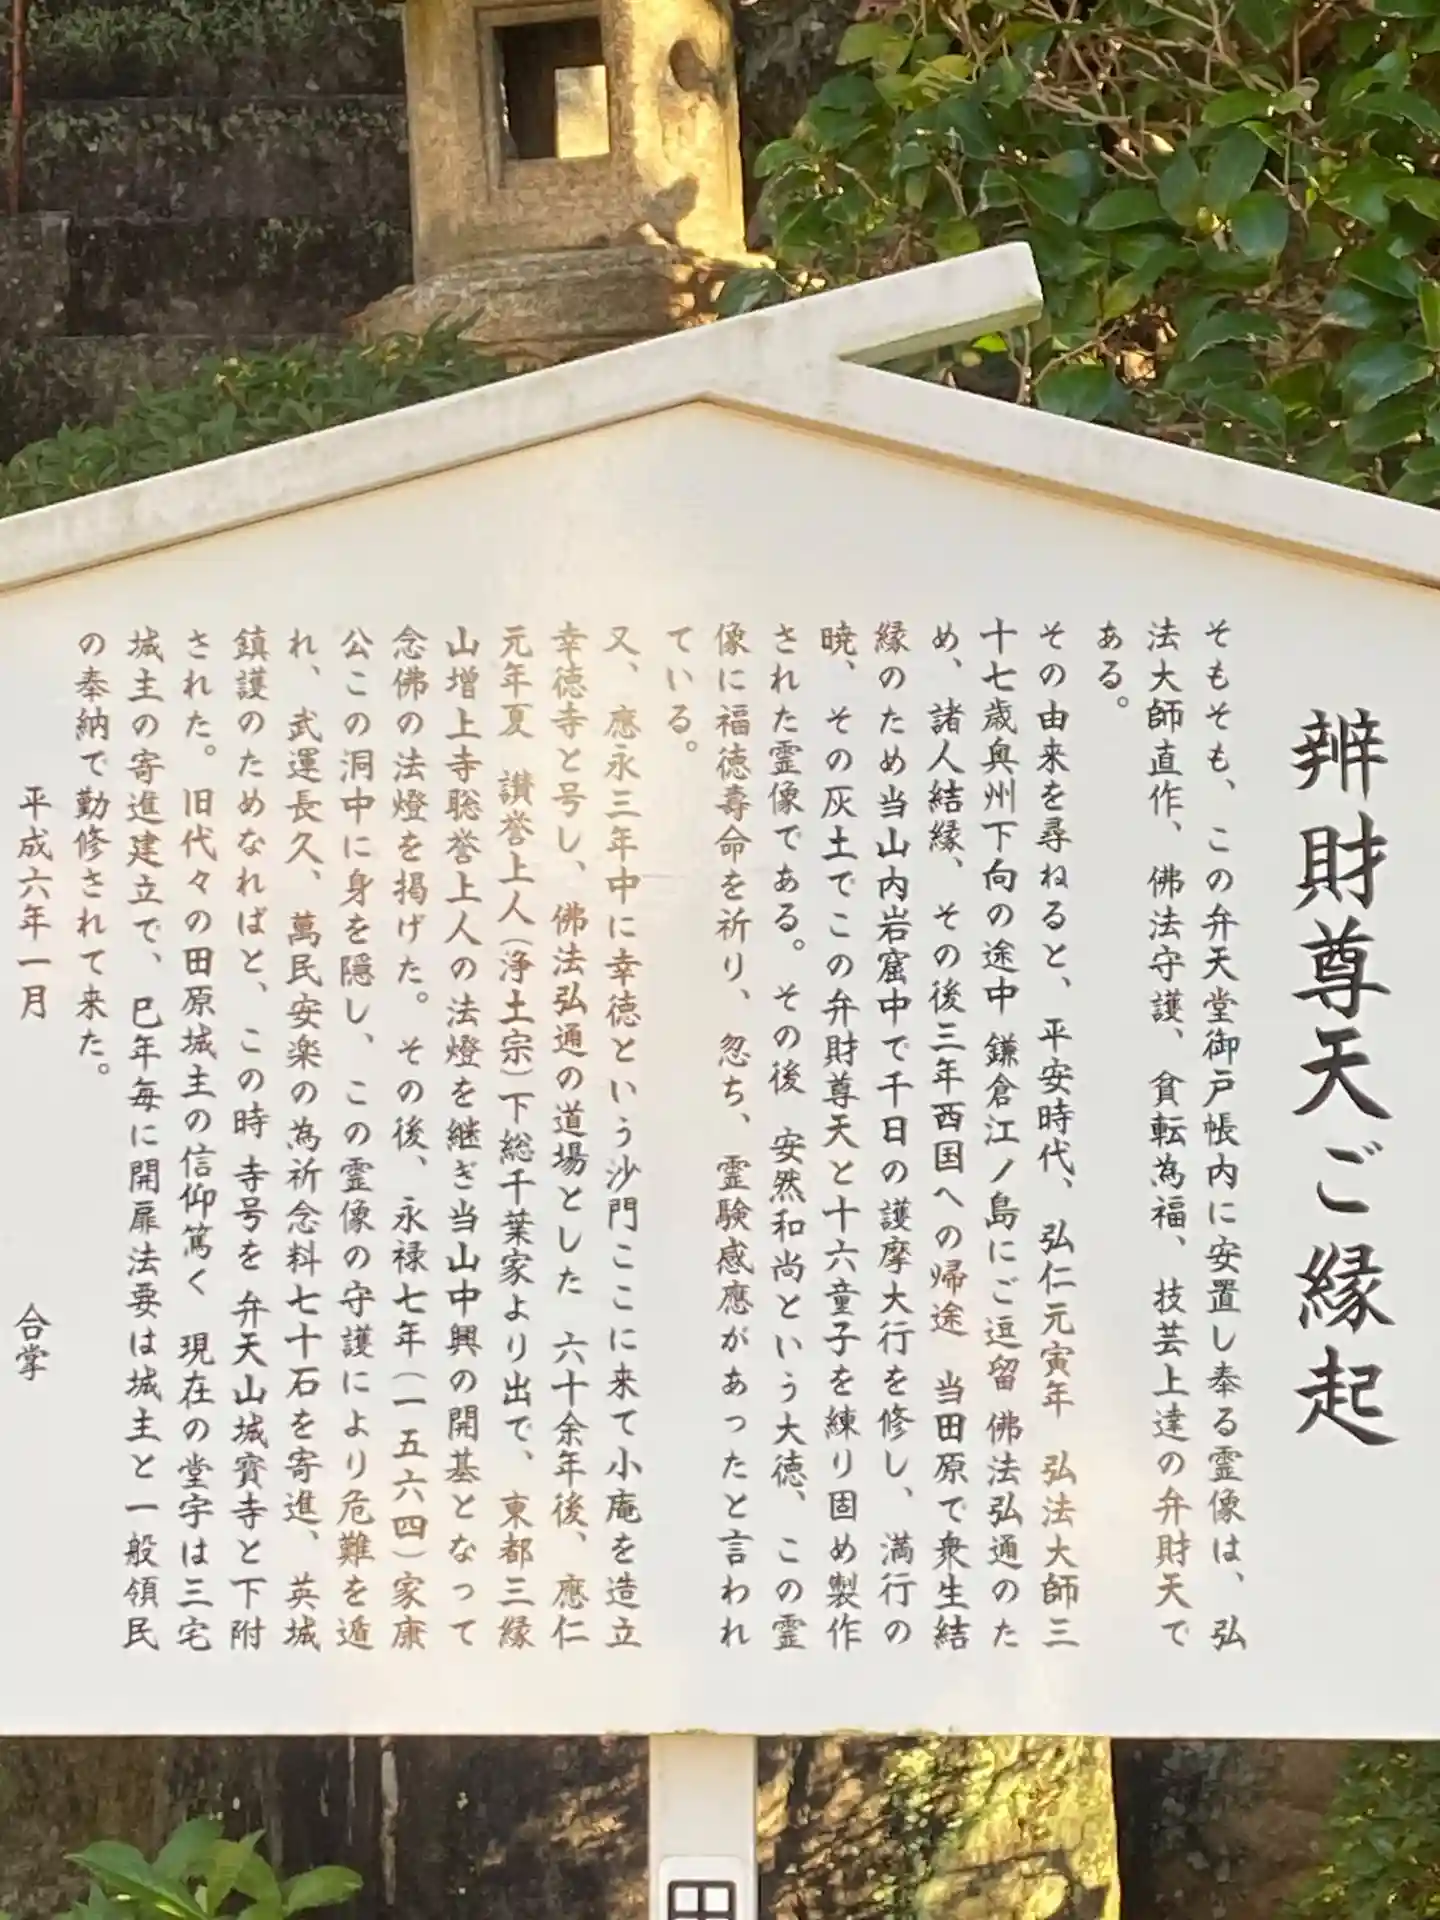 辨財尊天ご縁起
そもそも、この弁天堂御戸帳内に安置し奉る霊像は、弘
法大師直作、佛法守護、貧転為福、技芸上達の弁財天で
ある。
その由来を尋ねると、平安時代、弘仁元寅年 弘法大師三
十七歳奥州下向の途中 鎌倉江ノ島にご逗留 佛法弘通のた
め、諸人結縁、その後三年西国への帰途 当田原で衆生結
縁のため当山内岩窟中で千日の護摩大行を修し、満行の
暁、その灰土でこの弁財尊天と十六童子を練り固め製作
された霊像である。その後 安然和尚という大徳、この霊
像に福徳壽命を祈り、忽ち、霊験感應があったと言われ
ている。
又、應永三年中に幸徳という沙門ここに来て小庵を造立
幸徳寺と号し、佛法弘通の道場とした 六十余年後、應仁
元年夏 讃誉上人(浄土宗)下総千葉家より出で、東都三縁
山増上寺聡誉上人の法燈を継ぎ当山中興の開基となって
念佛の法燈を掲げた。その後、永禄七年(一五六四)家康
公この洞中に身を隠し、この霊像の守護により危難を遁
れ、武運長久、萬民安楽の為祈念料七十石を寄進、英城
鎮護のためなればと、この時 寺号を 弁天山城寳寺と下附
された。旧代々の田原城主の信仰篤く 現在の堂宇は三宅
城主の寄進建立で、巳年毎に開扉法要は城主と一般領民
の奉納で勤修されて来た。
平成六年一月 合掌
田